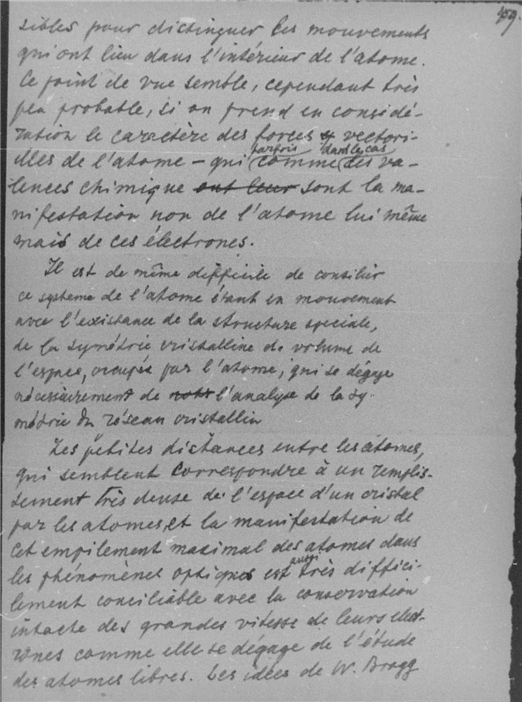 459.
sibles pour distinguer les mouvements
qui ont lieu dans l'intérieur de l'atome.
Ce point de vue semble, cependant très
peu probable, si on prend en considé-
ration le caractère des forces vectori-
elles de l'atome – qui parfois comme dans le cas des va-
lences chimique ont leur sont la ma-
nifestation non de l'atome lui même
mais de ces électrones.
Il est de même difficile de consilier
ce systeme de l'atome étant en mouvement
avec l'existance de la structure speciale,
de la symétrie cristalline de volume de
l'espace, occupée par l'atome, qui se dégage
nécessairement de l'analyse de la sy-
métrie du réseau cristallin
Les petites distances entre les atomes,
qui semblent correspondre à un remplis-
sement très dense de l'espace d'un cristal
par les atomes, et la manifestation de
cet empilement maximal des atomes dans
les phénomènes optiques est aussi très diffici-
lement conciliable avec la conservation
intacte des grandes vitesse de leurs elect-
rones comme elle se dégage de l'étude
des atomes libres. Les idées de W. Bragg